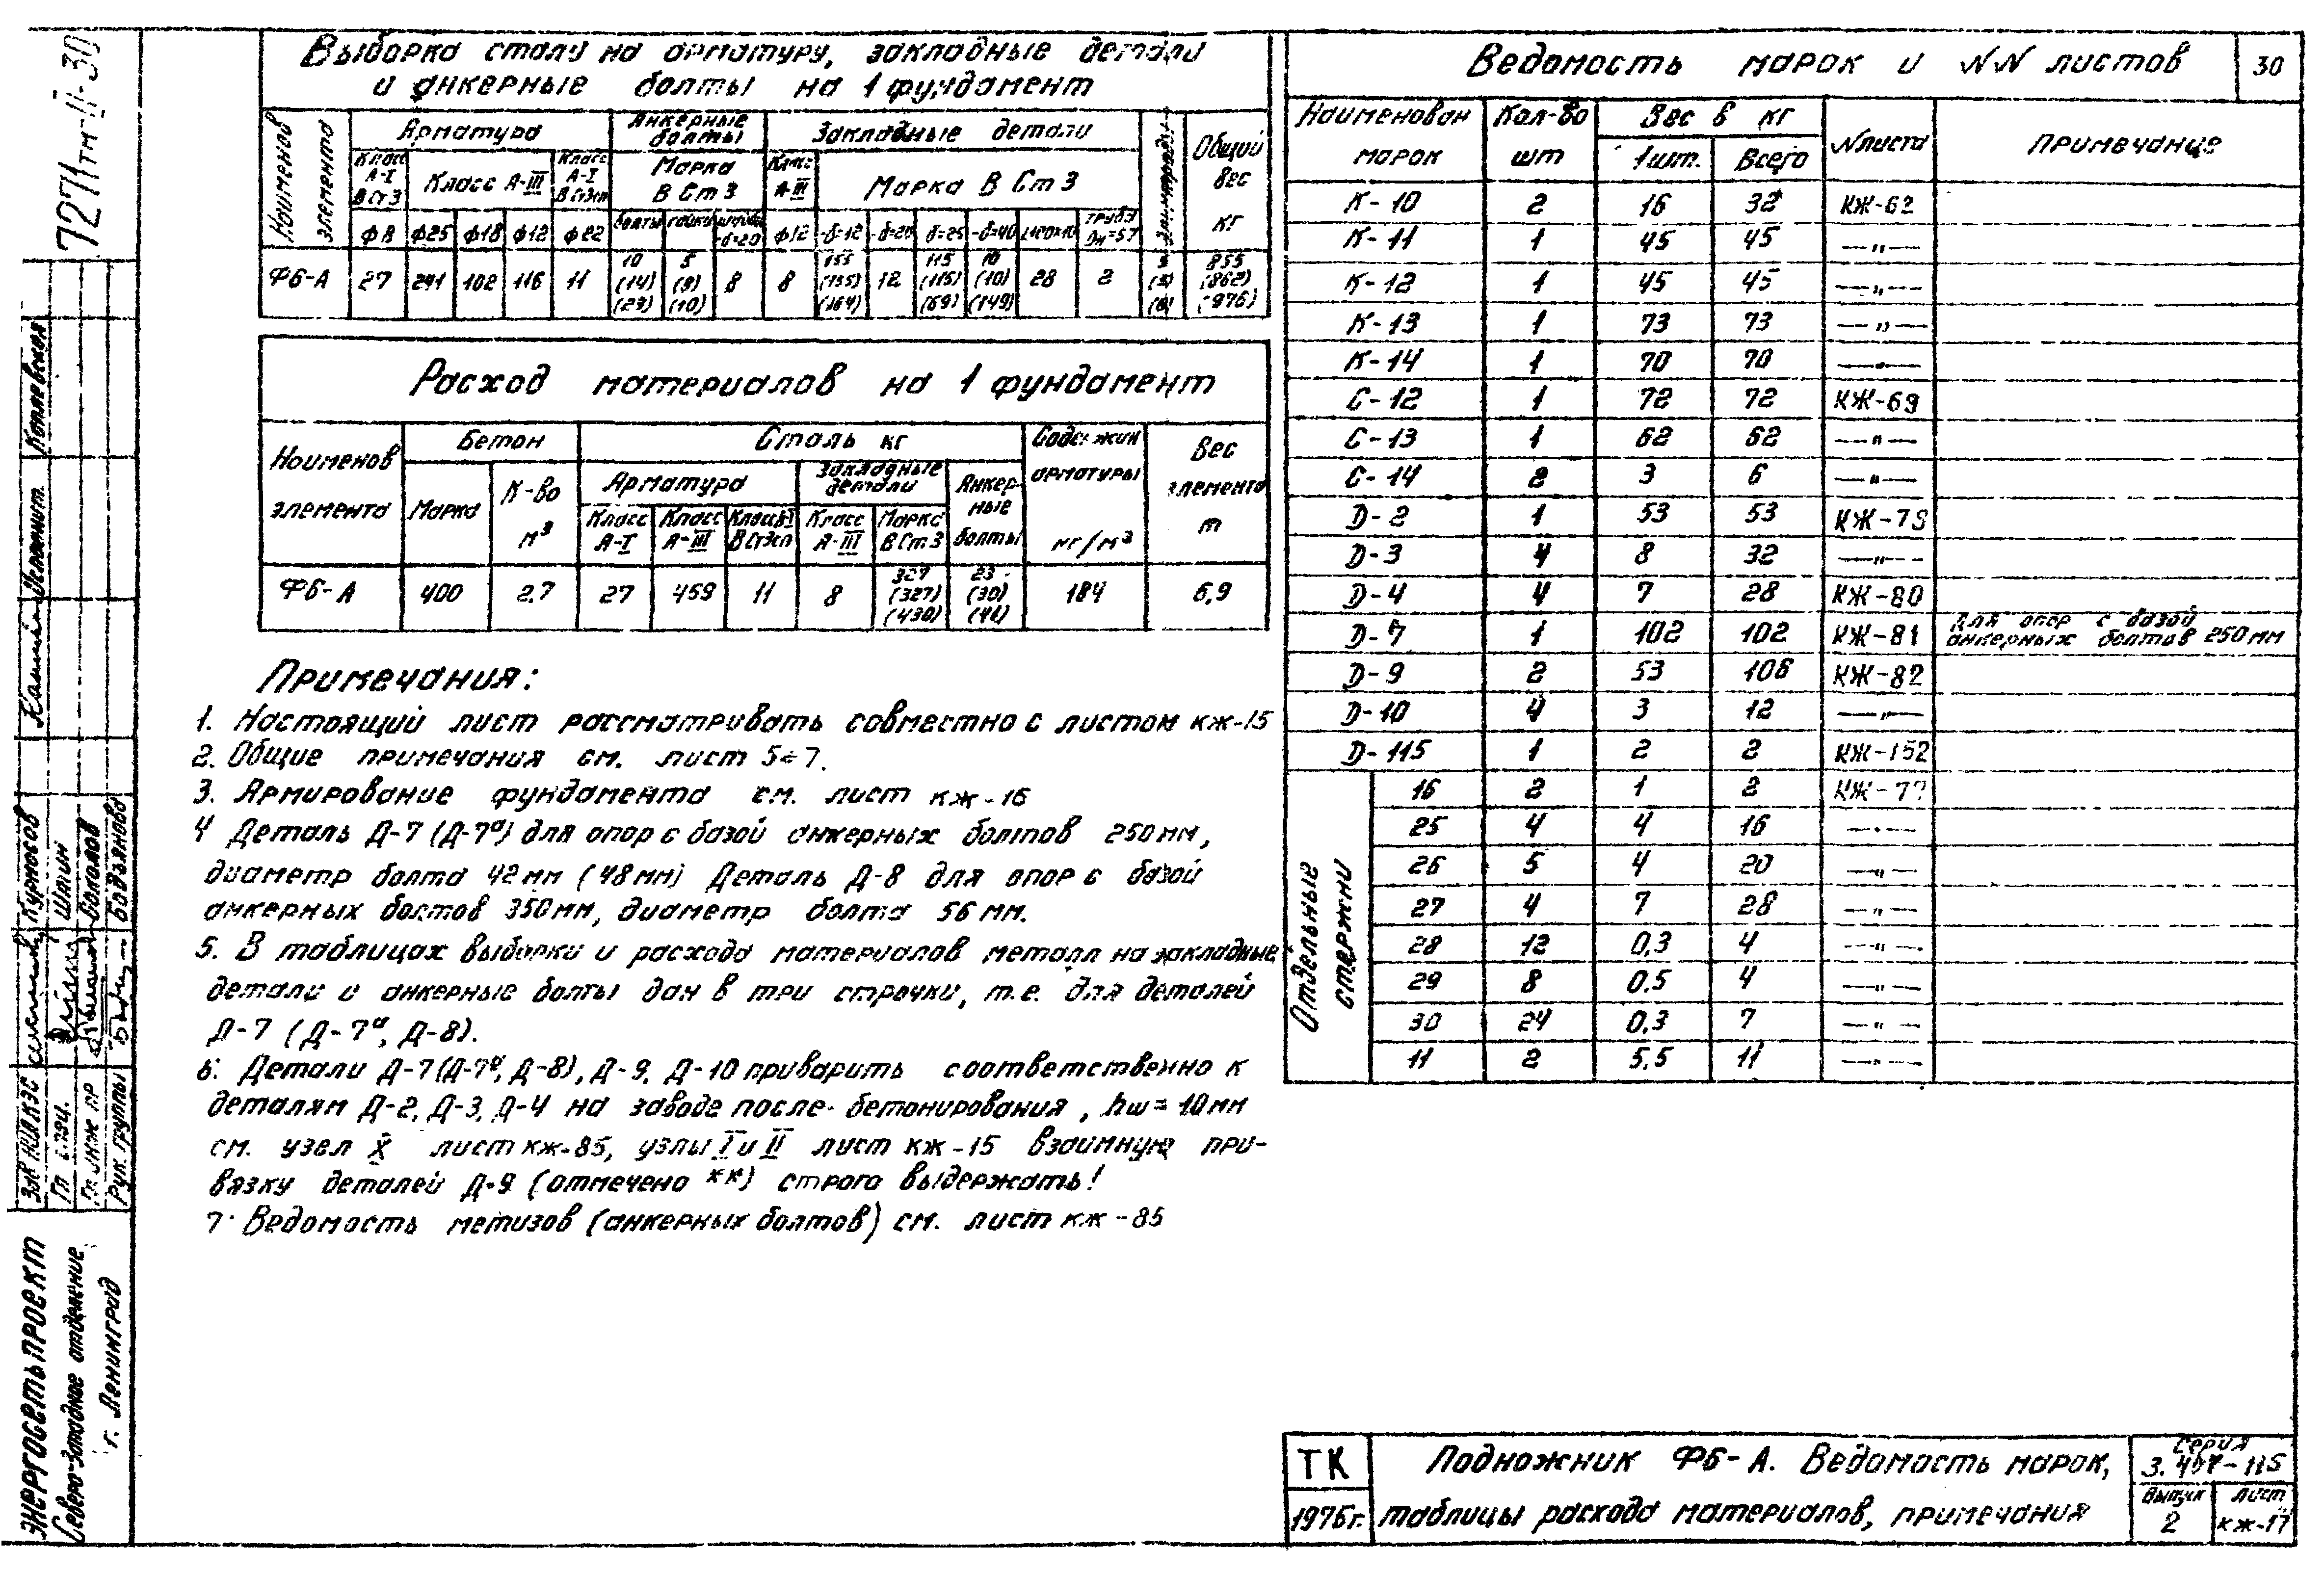 Выборка стали на арматуру, закладные детали
и анкерные болты на 1 фундамент
Наименов элемента
Арматура
Анкерные болты
Закладные детали
Общий вес кг
Класс А-I В Ст 3
Класс А-III
Класс А-I В Ст3сп
Марка В Ст 3
Класс А-III
Марка В Ст 3
ф8 ф25 ф18 ф12 ф22 болты гайки шайбы -δ=20 ф12 -δ=12 -δ=20 -δ=25 -δ=40 трубы Dн=57
Ф6-А 27 241 102 116 11 10 (14) (29) 5 (9) (10) 8 8 155 (155) (164) 12 115 (115) (69) 10 (10) (149) 28 2 855 (862) (976)
Расход материалов на 1 фундамент
Наименов элемента
Бетон
Сталь кг
Содержан арматуры кг/м³
Вес элемента т
Марка
К-во м³
Арматура
Закладные детали
Анкерные болты
Класс А-I
Класс А-III
Класс А-I В Ст3сп
Класс А-III
Марка В Ст 3
Ф6-А 400 2,7 27 459 11 8 327 (327) (430) 23 (30) 184 6,9
Примечания:
1. Настоящий лист рассматривать совместно с листом кж-15
2. Общие примечания см. лист 5÷7.
3. Армирование фундамента см. лист кж-16
4 Деталь Д-7 (Д-7ᵃ) для опор с базой анкерных болтов 250мм,
диаметр болта 42мм (48мм) Деталь Д-8 для опор с базой
анкерных болтов 350мм, диаметр болта 56 мм.
5. В таблицах выборки и расхода материалов металл на закладные
детали и анкерные болты дан в три строчки, т.е. для деталей
Д-7 (Д-7ᵃ, Д-8).
6. Детали Д-7(Д-7ᵃ, Д-8), Д-9, Д-10 приварить соответственно к
деталям Д-2, Д-3, Д-4 на заводе после бетонирования, hш=10мм
см. узел X лист кж-85, узлы I и II лист кж-15 взаимную при-
вязку деталей Д-9 (отмечено **) строго выдержать!
7. Ведомость метизов (анкерных болтов) см. лист кж-85
Ведомость марок и NN листов
30
Наименован марок
Кол-во шт
Вес в кг
1шт. Всего
N листа
примечание
К-10 2 16 32 КЖ-62
К-11 1 45 45 —"—
К-12 1 45 45 —"—
К-13 1 73 73 —"—
К-14 1 70 70 —"—
С-12 1 72 72 КЖ-69
С-13 1 62 62 —"—
С-14 2 3 6 —"—
D-2 1 53 53 КЖ-79
D-3 4 8 32 —"—
D-4 4 7 28 КЖ-80
D-7 1 102 102 КЖ-81 для опор с базой анкерных болтов 250мм
D-9 2 53 106 КЖ-82
D-10 4 3 12 —"—
D-115 1 2 2 КЖ-152
Отдельные стержни
16 2 1 2 КЖ-77
25 4 4 16 —"—
26 5 4 20 —"—
27 4 7 28 —"—
28 12 0,3 4 —"—
29 8 0,5 4 —"—
30 24 0,3 7 —"—
11 2 5,5 11 —"—
ТК
1976г.
Подножник Ф6-А. Ведомость марок,
таблицы расхода материалов, примечания
Серия
3.407-115
Выпуск
2
Лист
кж-17
7271тм-II-30
Зав НИЛКЭС Курносов
Штин
Гл. инж пр Соколов
Рук. группы
ЭНЕРГОСЕТЬПРОЕКТ
Северо-Западное отделение
г. Ленинград